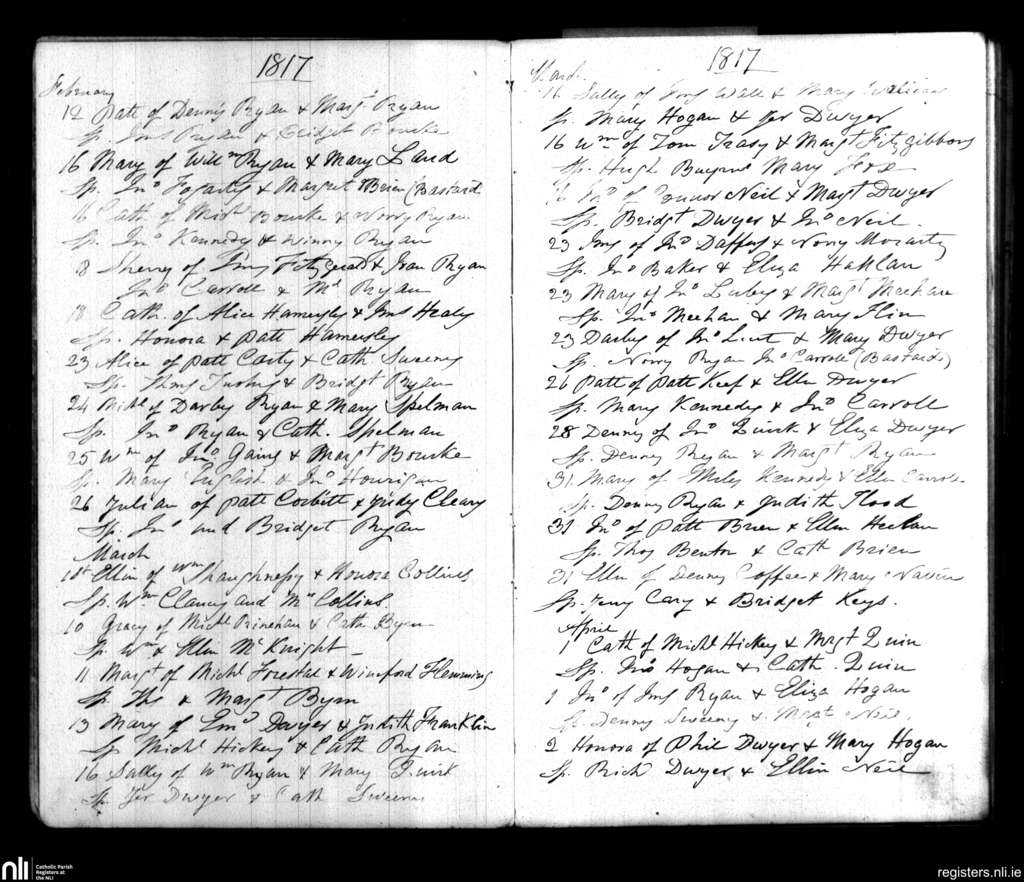 1817
February
12 Patt of Denny Ryan & Margt Ryan
Sp. Jms Ryan & Bridget Bourke
16 Mary of Willm Ryan & Mary Land
Sp. Jno Fogarty & Margret Brien (Bastard
16 Cath of Michl Bourke & Norry Ryan
Sp. Jno Kennedy & Winny Ryan
18 of Jms Fitzgerald & Joan Ryan
Jno Carroll & Mt Ryan
18 Cath. of Alice Hamersley & Jms Healy
Sp. Honora & Patt Hamersley
23 Alice of Patt Carty & Cath Sweeny
Sp. Thms & Bridgt Ryan
24 Michl of Darby Ryan & Mary Spelman
Sp. Jno Ryan & Cath. Spelman
25 Wm of Jno Gains & Margt Bourke
Sp. Mary English & Jno Hourigan
26 Julian of Patt Corbett & Judy Cleary
Sp. Jno and Bridget Ryan
March
1st Ellin of Wm Shaughnessy & Honora Collins
Sp. Wm Clancy and Collins
10 Gracy of Michl & Cath Ryan
Sp. Wm & Ellen McKnight
11 Margt of Michl Forestal & Wineford Flemming
Sp. Ths & Margt Byrn
13 Mary of Emd Dwyer & Judith Franklin
Sp Michl Hickey & Cath Ryan
16 Sally of Wm Ryan & Mary Quirk
Sp. Jer Dwyer & Cath Sweeny
1817
March
16 Sally of Jms Wall & Mary
Sp. Mary Hogan & Jer Dwyer
16 Wm of Tom Trasy & Margt Fitzgibbons
Sp. Hugh Mary Fox
16 Jno of Connor Neil & Margt Dwyer
Sp. Bridgt Dwyer & Jno Neil
23 Jms of Jno Daffy & Norry Moriarty
Sp. Jno Baker & Eliza Hallan
23 Mary of Jno & Margt Meehan
Sp. Jno Meehan & Mary Flin
23 Darby of Jno & Mary Dwyer
Sp. Norry Ryan Jno Carroll (Bastards)
26 Patt of Patt Keef & Ellen Dwyer
Sp. Mary Kennedy & Jno Carroll
28 Denny of Jno Quirk & Eliza Dwyer
Sp. Denny Ryan & Margt Ryan
31 Mary of Miles Kennedy & Ellen Carroll
Sp. Denny Ryan & Judith Flood
31 Jno of Patt Brien & Ellen Heelan
Sp. Thos Benton & Cath Brien
31 Ellen of Denny Coffee & Mary
Sp. Jerry Cary & Bridget Keys.
April
1 Cath of Michl Hickey & Margt Quin
Sp. Jno Hogan & Cath. Quin
1 Jno of Jms Ryan & Eliza Hogan
Sp. Denny Sweeny & Margt Neil.
2 Honora of Phil Dwyer & Mary Hogan
Sp. Rich Dwyer & Ellin Neil
nli
Catholic Parish
Registers at
the NLI
registers.nli.ie